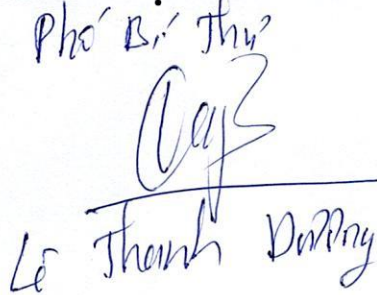 Phó Bí Thư
Lê Thanh Dương